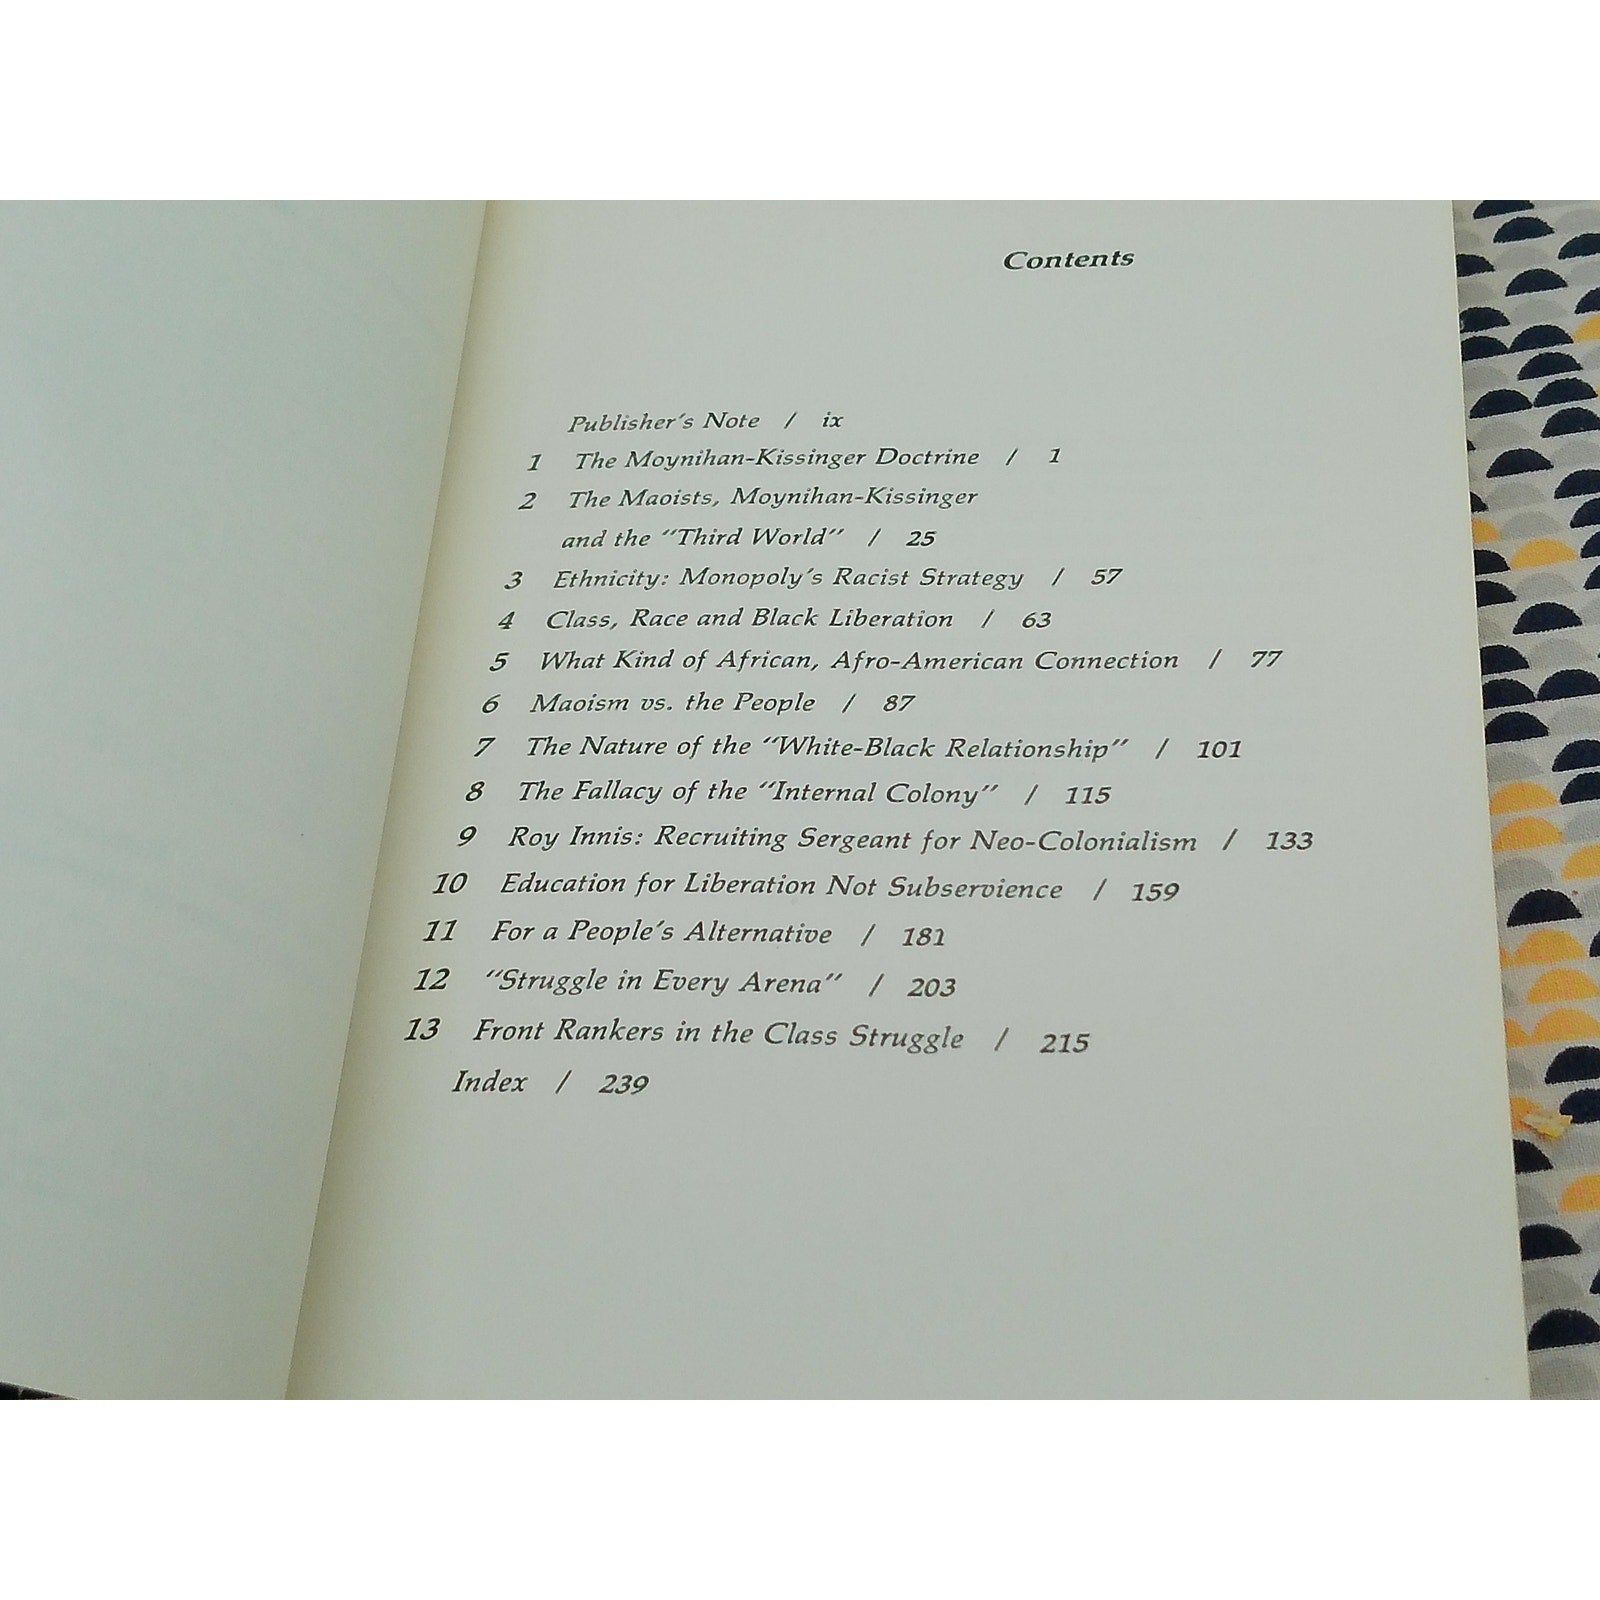 Contents
Publisher's Note / ix
1 The Moynihan-Kissinger Doctrine / 1
2 The Maoists, Moynihan-Kissinger
and the "Third World" / 25
3 Ethnicity: Monopoly's Racist Strategy / 57
4 Class, Race and Black Liberation / 63
5 What Kind of African, Afro-American Connection / 77
6 Maoism vs. the People / 87
7 The Nature of the "White-Black Relationship" / 101
8 The Fallacy of the "Internal Colony" / 115
9 Roy Innis: Recruiting Sergeant for Neo-Colonialism / 133
10 Education for Liberation Not Subservience / 159
11 For a People's Alternative / 181
12 "Struggle in Every Arena" / 203
13 Front Rankers in the Class Struggle / 215
Index / 239